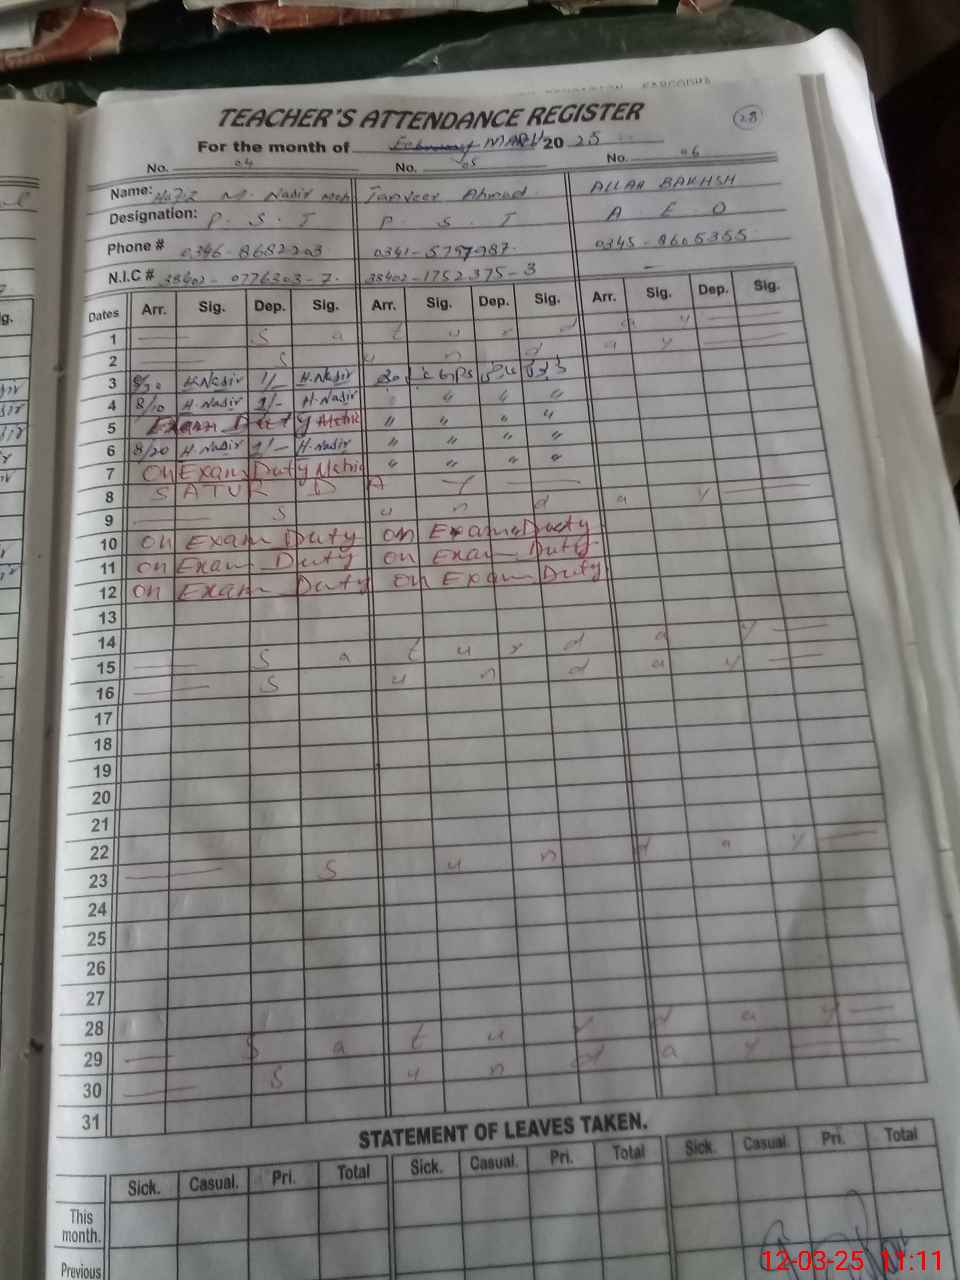 TEACHER'S ATTENDANCE REGISTER
28
For the month of February MARCH 20 25
No. 04 No. 05 No. 06
Name: Hafiz M. Nadir Tanveer Ahmad ALLAH BAKHSH
Designation: P. S. T P. S. T A E O
Phone # 0346-8682203 0341-5757987 0345-8605355
N.I.C # 38402-0776303-7 38402-1752375-3 -
Dates Arr. Sig. Dep. Sig. Arr. Sig. Dep. Sig. Arr. Sig. Dep. Sig.
1 S a t u r d a y
2 S u n d a y
3 8/30 H.Nadir 1/- H.Nadir
4 8/10 H.Nadir 2/- H.Nadir " " "
5 Exam Duty Metric " " " "
6 8/20 H.Nadir 2/- H.Nadir " " " "
7 On Exam Duty Metric " " " "
8 S A T U R D A Y
9 S u n d a y
10 On Exam Duty On Exam Duty
11 On Exam Duty On Exam Duty
12 On Exam Duty On Exam Duty
13
14
15 S a t u r d a y
16 S u n d a y
17
18
19
20
21
22
23 S u n d a y
24
25
26
27
28
29 S a t u r d a y
30 S u n d a y
31
STATEMENT OF LEAVES TAKEN.
Sick. Casual. Pri. Total Sick. Casual. Pri. Total Sick. Casual. Pri. Total
This
month.
Previous
12-03-25 11:11